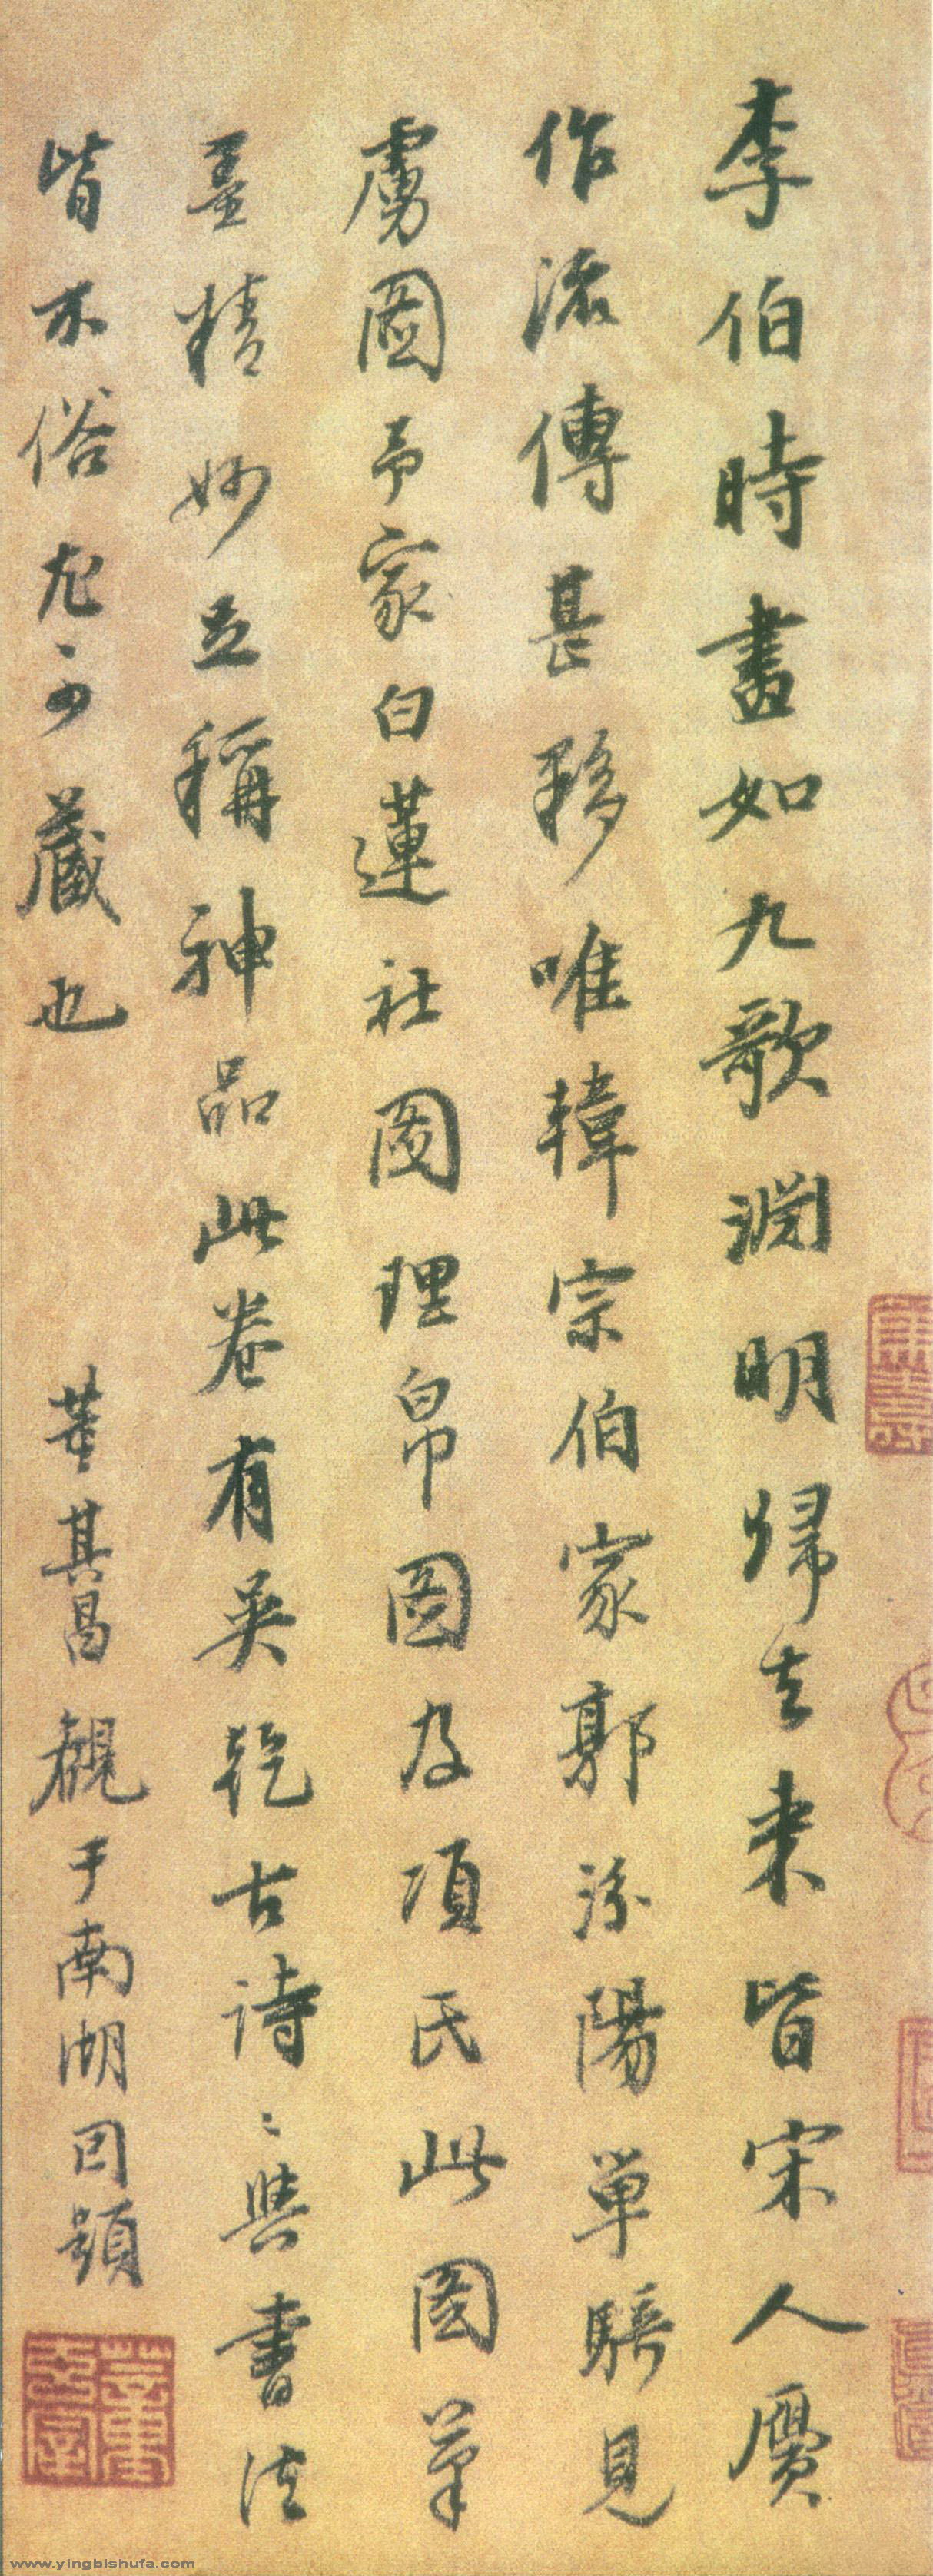 李伯時畫如九歌淵明歸去來皆宋人贋
作流傳甚夥唯韓宗伯家郭汾陽單騎見
虜圖予家白蓮社圖理帛圖及項氏此圖筆
墨精妙立稱神品此卷有吳說古詩詩與書法
皆不俗尤可藏也 董其昌觀于南湖因題
www.yingbishufa.com